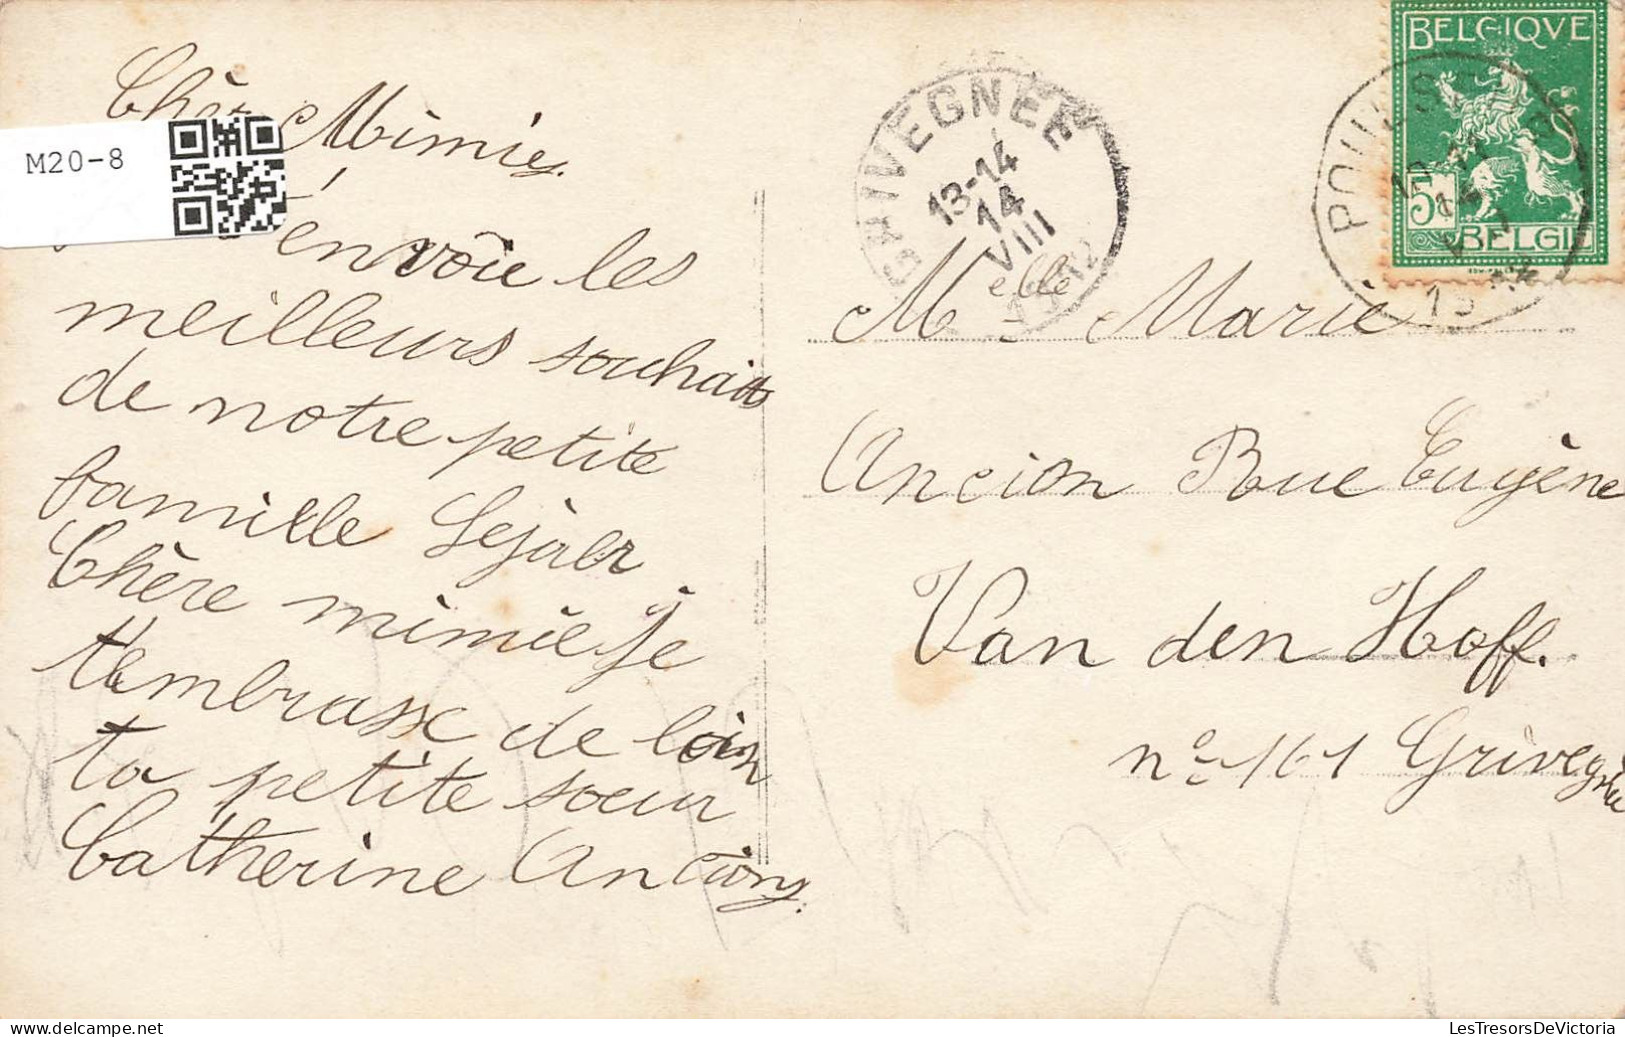 Chère Mimie,
M20-8
t'envoie les
meilleurs souhaits
de notre petite
famille
Chère mimie je
t'embrasse de loin
ta petite sœur
Catherine Ancion,
GRIVEGNÉE
13-14
14
VIII
1912
BELGIQVE
5
BELGIË
Melle Marie
Ancion Rue Eugène
Van den Hoff.
no 161 Grivegnée
LesTresorsDeVictoria